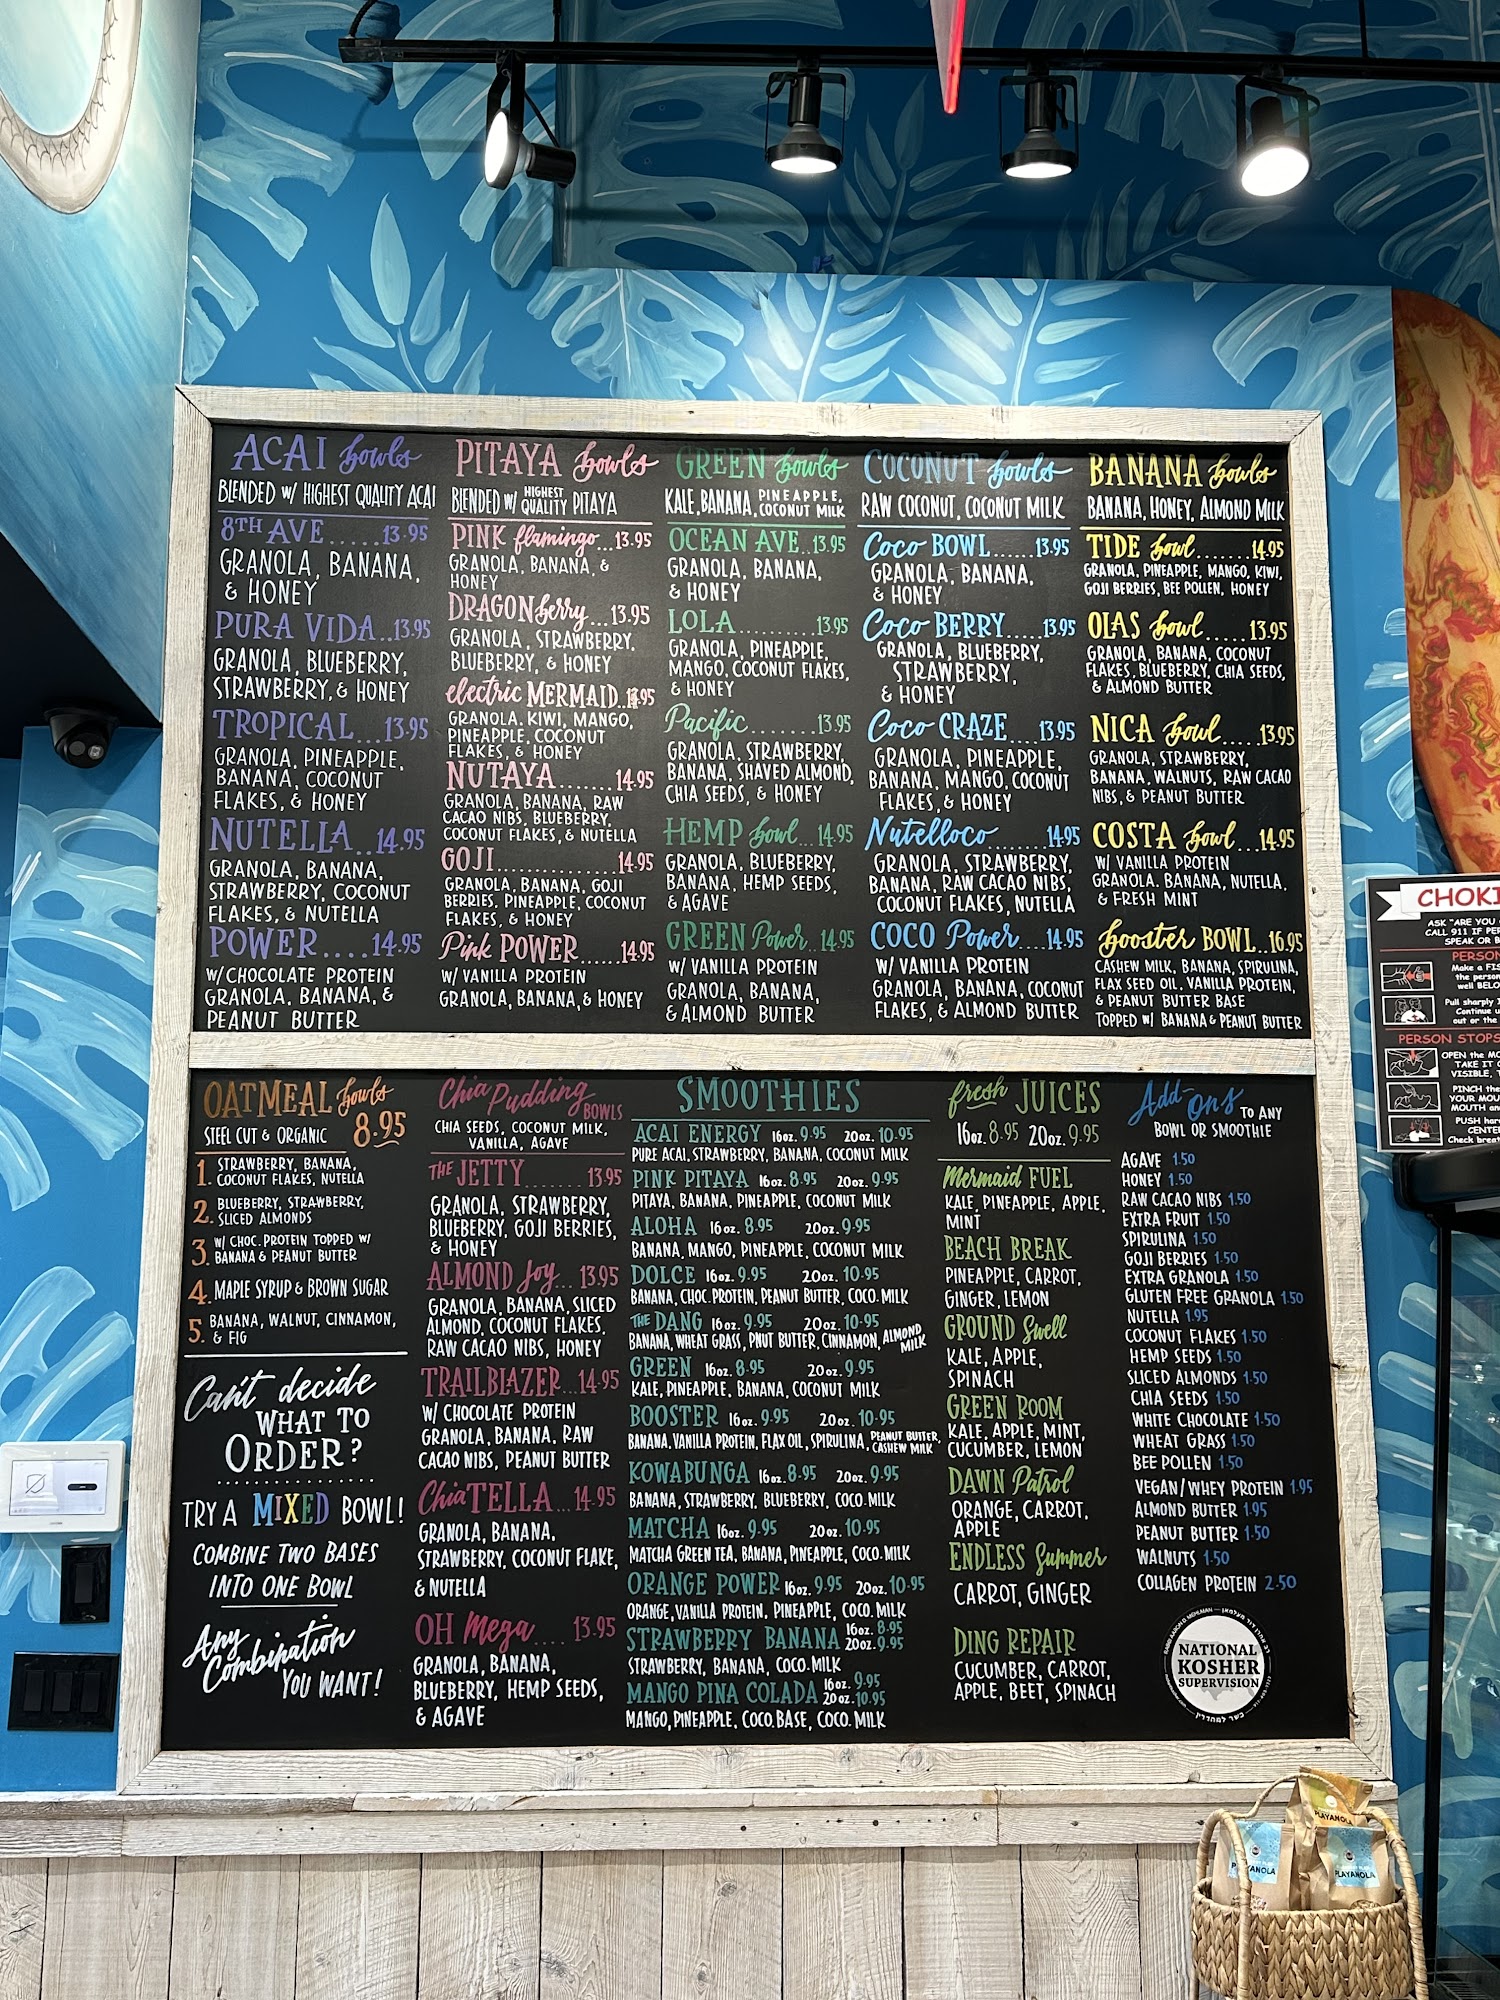 ACAI bowls
BLENDED W/ HIGHEST QUALITY ACAI
8TH AVE.....13.95
GRANOLA, BANANA,
& HONEY
PURA VIDA..13.95
GRANOLA, BLUEBERRY,
STRAWBERRY, & HONEY
TROPICAL...13.95
GRANOLA, PINEAPPLE,
BANANA, COCONUT
FLAKES, & HONEY
NUTELLA..14.95
GRANOLA, BANANA,
STRAWBERRY, COCONUT
FLAKES, & NUTELLA
POWER....14.95
W/ CHOCOLATE PROTEIN
GRANOLA, BANANA, &
PEANUT BUTTER
PITAYA bowls
BLENDED W/ HIGHEST QUALITY PITAYA
PINK flamingo...13.95
GRANOLA, BANANA, &
HONEY
DRAGON berry...13.95
GRANOLA, STRAWBERRY,
BLUEBERRY, & HONEY
electric MERMAID..13.95
GRANOLA, KIWI, MANGO,
PINEAPPLE, COCONUT
FLAKES, & HONEY
NUTAYA.......14.95
GRANOLA, BANANA, RAW
CACAO NIBS, BLUEBERRY,
COCONUT FLAKES, & NUTELLA
GOJI..............14.95
GRANOLA, BANANA, GOJI
BERRIES, PINEAPPLE, COCONUT
FLAKES, & HONEY
Pink POWER......14.95
W/ VANILLA PROTEIN
GRANOLA, BANANA, & HONEY
GREEN bowls
KALE, BANANA, PINEAPPLE, COCONUT MILK
OCEAN AVE..13.95
GRANOLA, BANANA,
& HONEY
LOLA.........13.95
GRANOLA, PINEAPPLE,
MANGO, COCONUT FLAKES,
& HONEY
Pacific........13.95
GRANOLA, STRAWBERRY,
BANANA, SHAVED ALMOND,
CHIA SEEDS, & HONEY
HEMP bowl...14.95
GRANOLA, BLUEBERRY,
BANANA, HEMP SEEDS,
& AGAVE
GREEN Power..14.95
W/ VANILLA PROTEIN
GRANOLA, BANANA,
& ALMOND BUTTER
COCONUT bowls
RAW COCONUT, COCONUT MILK
Coco BOWL......13.95
GRANOLA, BANANA,
& HONEY
Coco BERRY.....13.95
GRANOLA, BLUEBERRY,
STRAWBERRY,
& HONEY
Coco CRAZE....13.95
GRANOLA, PINEAPPLE,
BANANA, MANGO, COCONUT
FLAKES, & HONEY
Nutelloco.......14.95
GRANOLA, STRAWBERRY,
BANANA, RAW CACAO NIBS,
COCONUT FLAKES, NUTELLA
COCO Power....14.95
W/ VANILLA PROTEIN
GRANOLA, BANANA, COCONUT
FLAKES, & ALMOND BUTTER
BANANA bowls
BANANA, HONEY, ALMOND MILK
TIDE bowl........14.95
GRANOLA, PINEAPPLE, MANGO, KIWI,
GOJI BERRIES, BEE POLLEN, HONEY
OLAS bowl.....13.95
GRANOLA, BANANA, COCONUT
FLAKES, BLUEBERRY, CHIA SEEDS,
& ALMOND BUTTER
NICA bowl.....13.95
GRANOLA, STRAWBERRY,
BANANA, WALNUTS, RAW CACAO
NIBS, & PEANUT BUTTER
COSTA bowl....14.95
W/ VANILLA PROTEIN
GRANOLA, BANANA, NUTELLA,
& FRESH MINT
booster BOWL..16.95
CASHEW MILK, BANANA, SPIRULINA,
FLAX SEED OIL, VANILLA PROTEIN,
& PEANUT BUTTER BASE
TOPPED W/ BANANA & PEANUT BUTTER
OATMEAL bowls
STEEL CUT & ORGANIC 8.95
1. STRAWBERRY, BANANA,
COCONUT FLAKES, NUTELLA
2. BLUEBERRY, STRAWBERRY,
SLICED ALMONDS
3. W/ CHOC. PROTEIN TOPPED W/
BANANA & PEANUT BUTTER
4. MAPLE SYRUP & BROWN SUGAR
5. BANANA, WALNUT, CINNAMON,
& FIG
Can't decide
WHAT TO
ORDER?
TRY A MIXED BOWL!
COMBINE TWO BASES
INTO ONE BOWL
Any
Combination
YOU WANT!
Chia Pudding BOWLS
CHIA SEEDS, COCONUT MILK,
VANILLA, AGAVE
THE JETTY.......13.95
GRANOLA, STRAWBERRY,
BLUEBERRY, GOJI BERRIES,
& HONEY
ALMOND Joy...13.95
GRANOLA, BANANA, SLICED
ALMOND, COCONUT FLAKES,
RAW CACAO NIBS, HONEY
TRAILBLAZER...14.95
W/ CHOCOLATE PROTEIN
GRANOLA, BANANA, RAW
CACAO NIBS, PEANUT BUTTER
ChiaTELLA...14.95
GRANOLA, BANANA,
STRAWBERRY, COCONUT FLAKE,
& NUTELLA
OH Mega....13.95
GRANOLA, BANANA,
BLUEBERRY, HEMP SEEDS,
& AGAVE
SMOOTHIES
ACAI ENERGY 16oz. 9.95 20oz. 10.95
PURE ACAI, STRAWBERRY, BANANA, COCONUT MILK
PINK PITAYA 16oz. 8.95 20oz. 9.95
PITAYA, BANANA, PINEAPPLE, COCONUT MILK
ALOHA 16oz. 8.95 20oz. 9.95
BANANA, MANGO, PINEAPPLE, COCONUT MILK
DOLCE 16oz. 9.95 20oz. 10.95
BANANA, CHOC. PROTEIN, PEANUT BUTTER, COCO. MILK
THE DANG 16oz. 9.95 20oz. 10.95
BANANA, WHEAT GRASS, PNUT BUTTER, CINNAMON, ALMOND MILK
GREEN 16oz. 8.95 20oz. 9.95
KALE, PINEAPPLE, BANANA, COCONUT MILK
BOOSTER 16oz. 9.95 20oz. 10.95
BANANA, VANILLA PROTEIN, FLAX OIL, SPIRULINA, PEANUT BUTTER, CASHEW MILK
KOWABUNGA 16oz. 8.95 20oz. 9.95
BANANA, STRAWBERRY, BLUEBERRY, COCO. MILK
MATCHA 16oz. 9.95 20oz. 10.95
MATCHA GREEN TEA, BANANA, PINEAPPLE, COCO. MILK
ORANGE POWER 16oz. 9.95 20oz. 10.95
ORANGE, VANILLA PROTEIN, PINEAPPLE, COCO. MILK
STRAWBERRY BANANA 16oz. 8.95 20oz. 9.95
STRAWBERRY, BANANA, COCO. MILK
MANGO PINA COLADA 16oz. 9.95 20oz. 10.95
MANGO, PINEAPPLE, COCO. BASE, COCO. MILK
fresh JUICES
16oz. 8.95 20oz. 9.95
Mermaid FUEL
KALE, PINEAPPLE, APPLE,
MINT
BEACH BREAK
PINEAPPLE, CARROT,
GINGER, LEMON
GROUND Swell
KALE, APPLE,
SPINACH
GREEN ROOM
KALE, APPLE, MINT,
CUCUMBER, LEMON
DAWN Patrol
ORANGE, CARROT,
APPLE
ENDLESS Summer
CARROT, GINGER
DING REPAIR
CUCUMBER, CARROT,
APPLE, BEET, SPINACH
Add-ons TO ANY
BOWL OR SMOOTHIE
AGAVE 1.50
HONEY 1.50
RAW CACAO NIBS 1.50
EXTRA FRUIT 1.50
SPIRULINA 1.50
GOJI BERRIES 1.50
EXTRA GRANOLA 1.50
GLUTEN FREE GRANOLA 1.50
NUTELLA 1.95
COCONUT FLAKES 1.50
HEMP SEEDS 1.50
SLICED ALMONDS 1.50
CHIA SEEDS 1.50
WHITE CHOCOLATE 1.50
WHEAT GRASS 1.50
BEE POLLEN 1.50
VEGAN/WHEY PROTEIN 1.95
ALMOND BUTTER 1.95
PEANUT BUTTER 1.50
WALNUTS 1.50
COLLAGEN PROTEIN 2.50
NATIONAL
KOSHER
SUPERVISION
CHOKI
ASK "ARE YOU
CALL 911 IF PER
SPEAK OR B
PERSON
Make a FIS
the person
well BELO
Pull sharply
Continue u
out or the
PERSON STOPS
OPEN the MO
TAKE IT
VISIBLE,
PINCH the
YOUR MOU
MOUTH an
PUSH har
CENTE
Check brea
PLAYANOLA
PLAYANOLA
PLAYANOLA